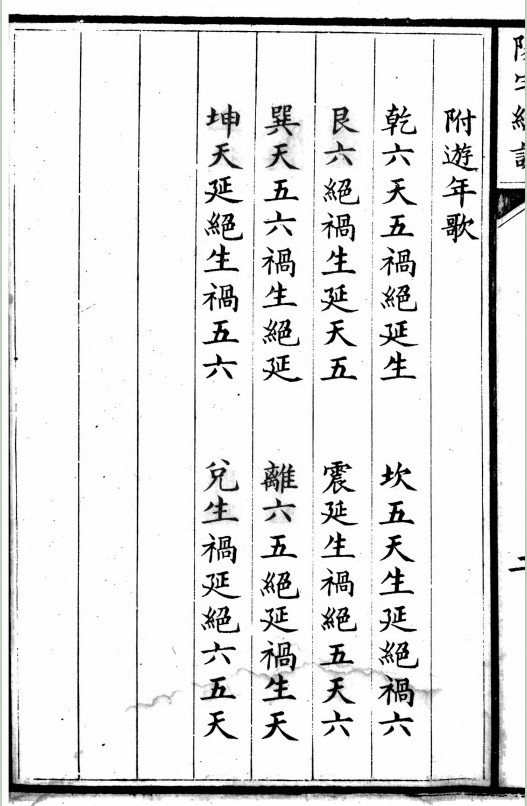 附遊年歌
乾六天五禍絕延生　坎五天生延絕禍六
艮六絕禍生延天五　震延生禍絕五天六
巽天五六禍生絕延　離六五絕延禍生天
坤天延絕生禍五六　兌生禍延絕六五天